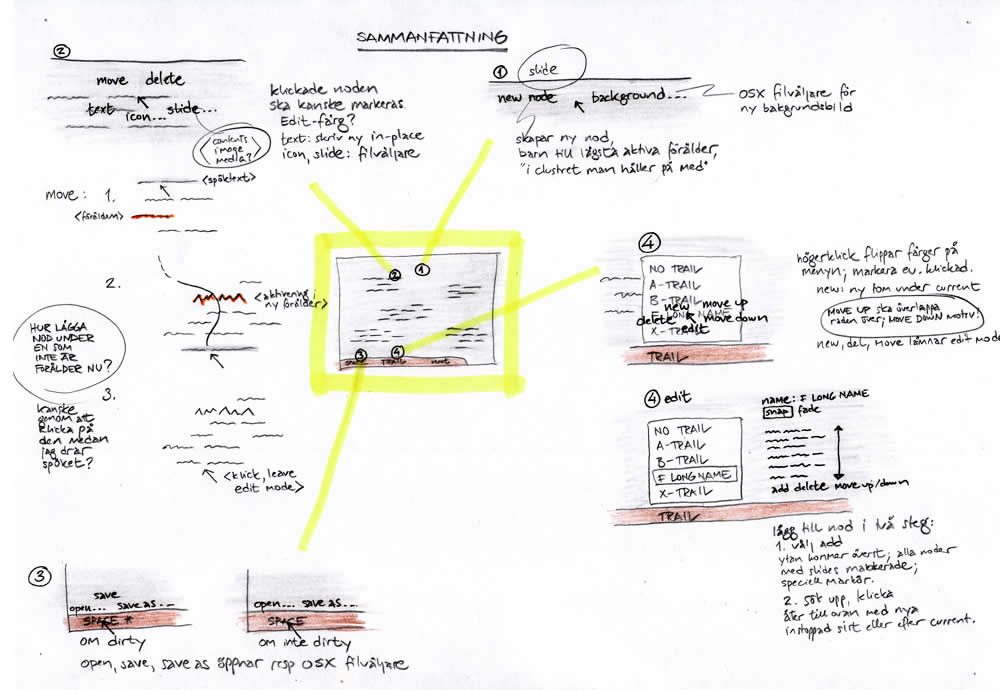 SAMMANFATTNING
②
move delete
text icon... slide...
<contents image media?>
klickade noden
ska kanske markeras.
Edit-färg?
text: skriv ny in-place
icon, slide: filväljare
①
slide
new node background...
OSX filväljare för
ny bakgrundsbild
skapar ny nod,
barn till lägsta aktiva förälder,
"i clustret man håller på med"
move: 1.
<spöktext>
<föräldern>
2.
<aktivering i
ny förälder>
HUR LÄGGA
NOD UNDER
EN SOM
INTE ÄR
FÖRÄLDER NU?
3.
kanske
genom att
klicka på
den medan
jag drar
spöket?
<klick, leave
edit mode>
② ①
③ ④
SPACE TRAIL next
④
NO TRAIL
A-TRAIL
B-TRAIL
F LONG NAME
X-TRAIL
new move up
delete move down
edit
TRAIL
högerklick flippar färger på
menyn; markera ev. klickad.
new: ny tom under current
MOVE UP ska överlappa
raden över; MOVE DOWN motsv!
new, del, move lämnar edit mode
④ edit
NO TRAIL
A-TRAIL
B-TRAIL
F LONG NAME
X-TRAIL
TRAIL
name: F LONG NAME
snap fade
add delete move up/down
lägg till nod i två steg:
1. välj add
ytan kommer överst; alla noder
med slides markerade;
speciell markör.
2. sök upp, klicka
åter till ovan med nya
instoppad sist eller efter current.
③
save
open... save as...
SPACE *
om dirty
open... save as...
SPACE
om inte dirty
open, save, save as öppnar resp OSX filväljare